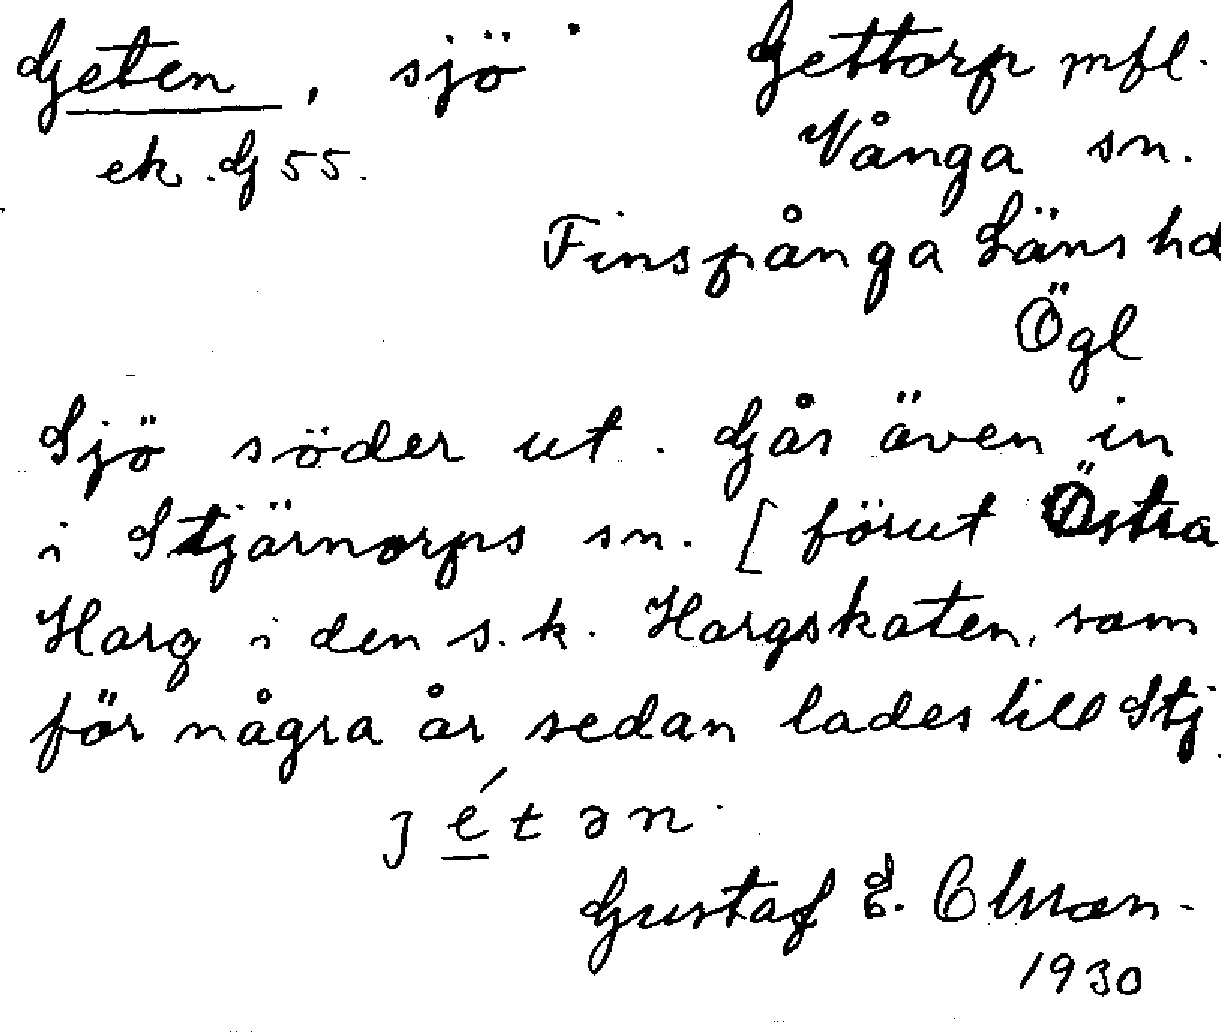 Geten, sjö Gettorp mfl.
ek. G 55. Vånga sn.
Finspånga Läns hd
Ögl
Sjö söder ut. Går även in
i Stjärnorps sn. [förut Östra
Harg i den s.k. Hargskaten, som
för några år sedan lades till Stj.
j é t ə n
Gustaf E. Olsson.
1930